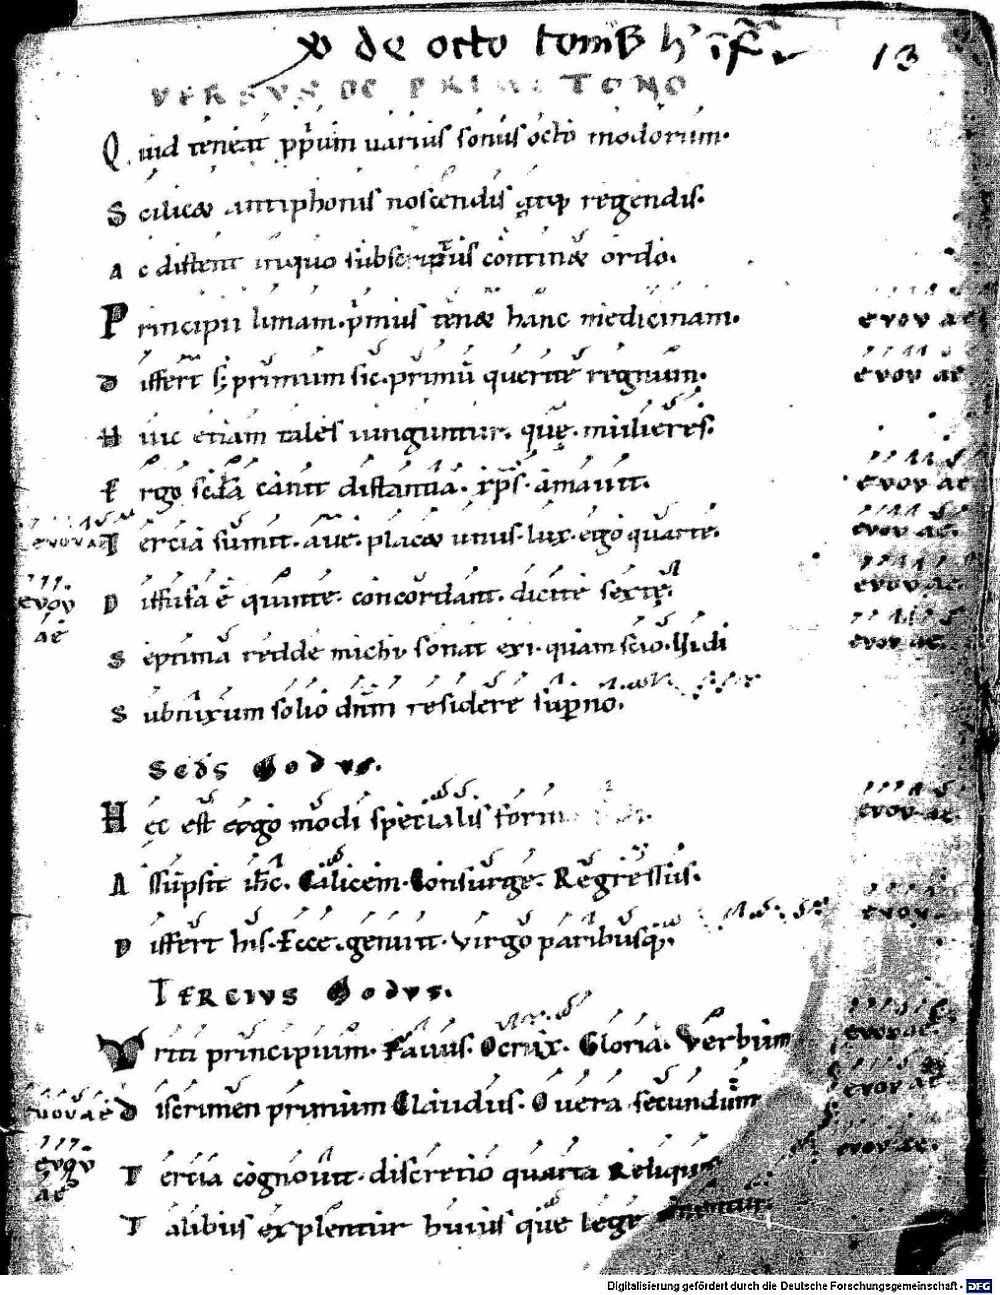 de octo
13
VERSUS DE PRIMO TONO
Quid teneat ꝓprium uarius sonus octo modorum.
Scilicæ antiphonis noscendis atq; regendis.
Ac distent inquo subscriptus continæ ordo.
Principii limam. p̍mus tenæ hanc medicinam.
euou ae
Differt s; primum sic. primū querite regnum.
euou ae
Huic etiam tales iunguntur. quę. mulieres.
Ergo scd̄a canit distantia. xp̄s. amauit.
euou ae
euouae Tercia sumit. aue. placæ unus. lux. ego quarte.
euou ae.
euou ae
Diffusa ē quinte. concordant. dicite sextę.
euou ae.
Septima redde michi sonat exi. quam scio.
euou ae.
Subnixum solio dn̄m residere suꝑno.
SCDS MODUS.
Hec est ergo modi specialis
euou. ae.
Assūpsit ihc̄. Calicem. Consurge. Regressus.
euou.
Differt his. Ecce. genuit. virgo paribusq;
TERCIUS MODUS.
Viti principium. Fauus. O crux. Gloria. Verbum
euouae.
euouae Discrimen primum Claudus. O uera. secundum
euou ae
euou ae
Tercia cognouit. discretio quarta
euou ae.
Talibus explentur huius que lege
Digitalisierung gefördert durch die Deutsche Forschungsgemeinschaft - DFG